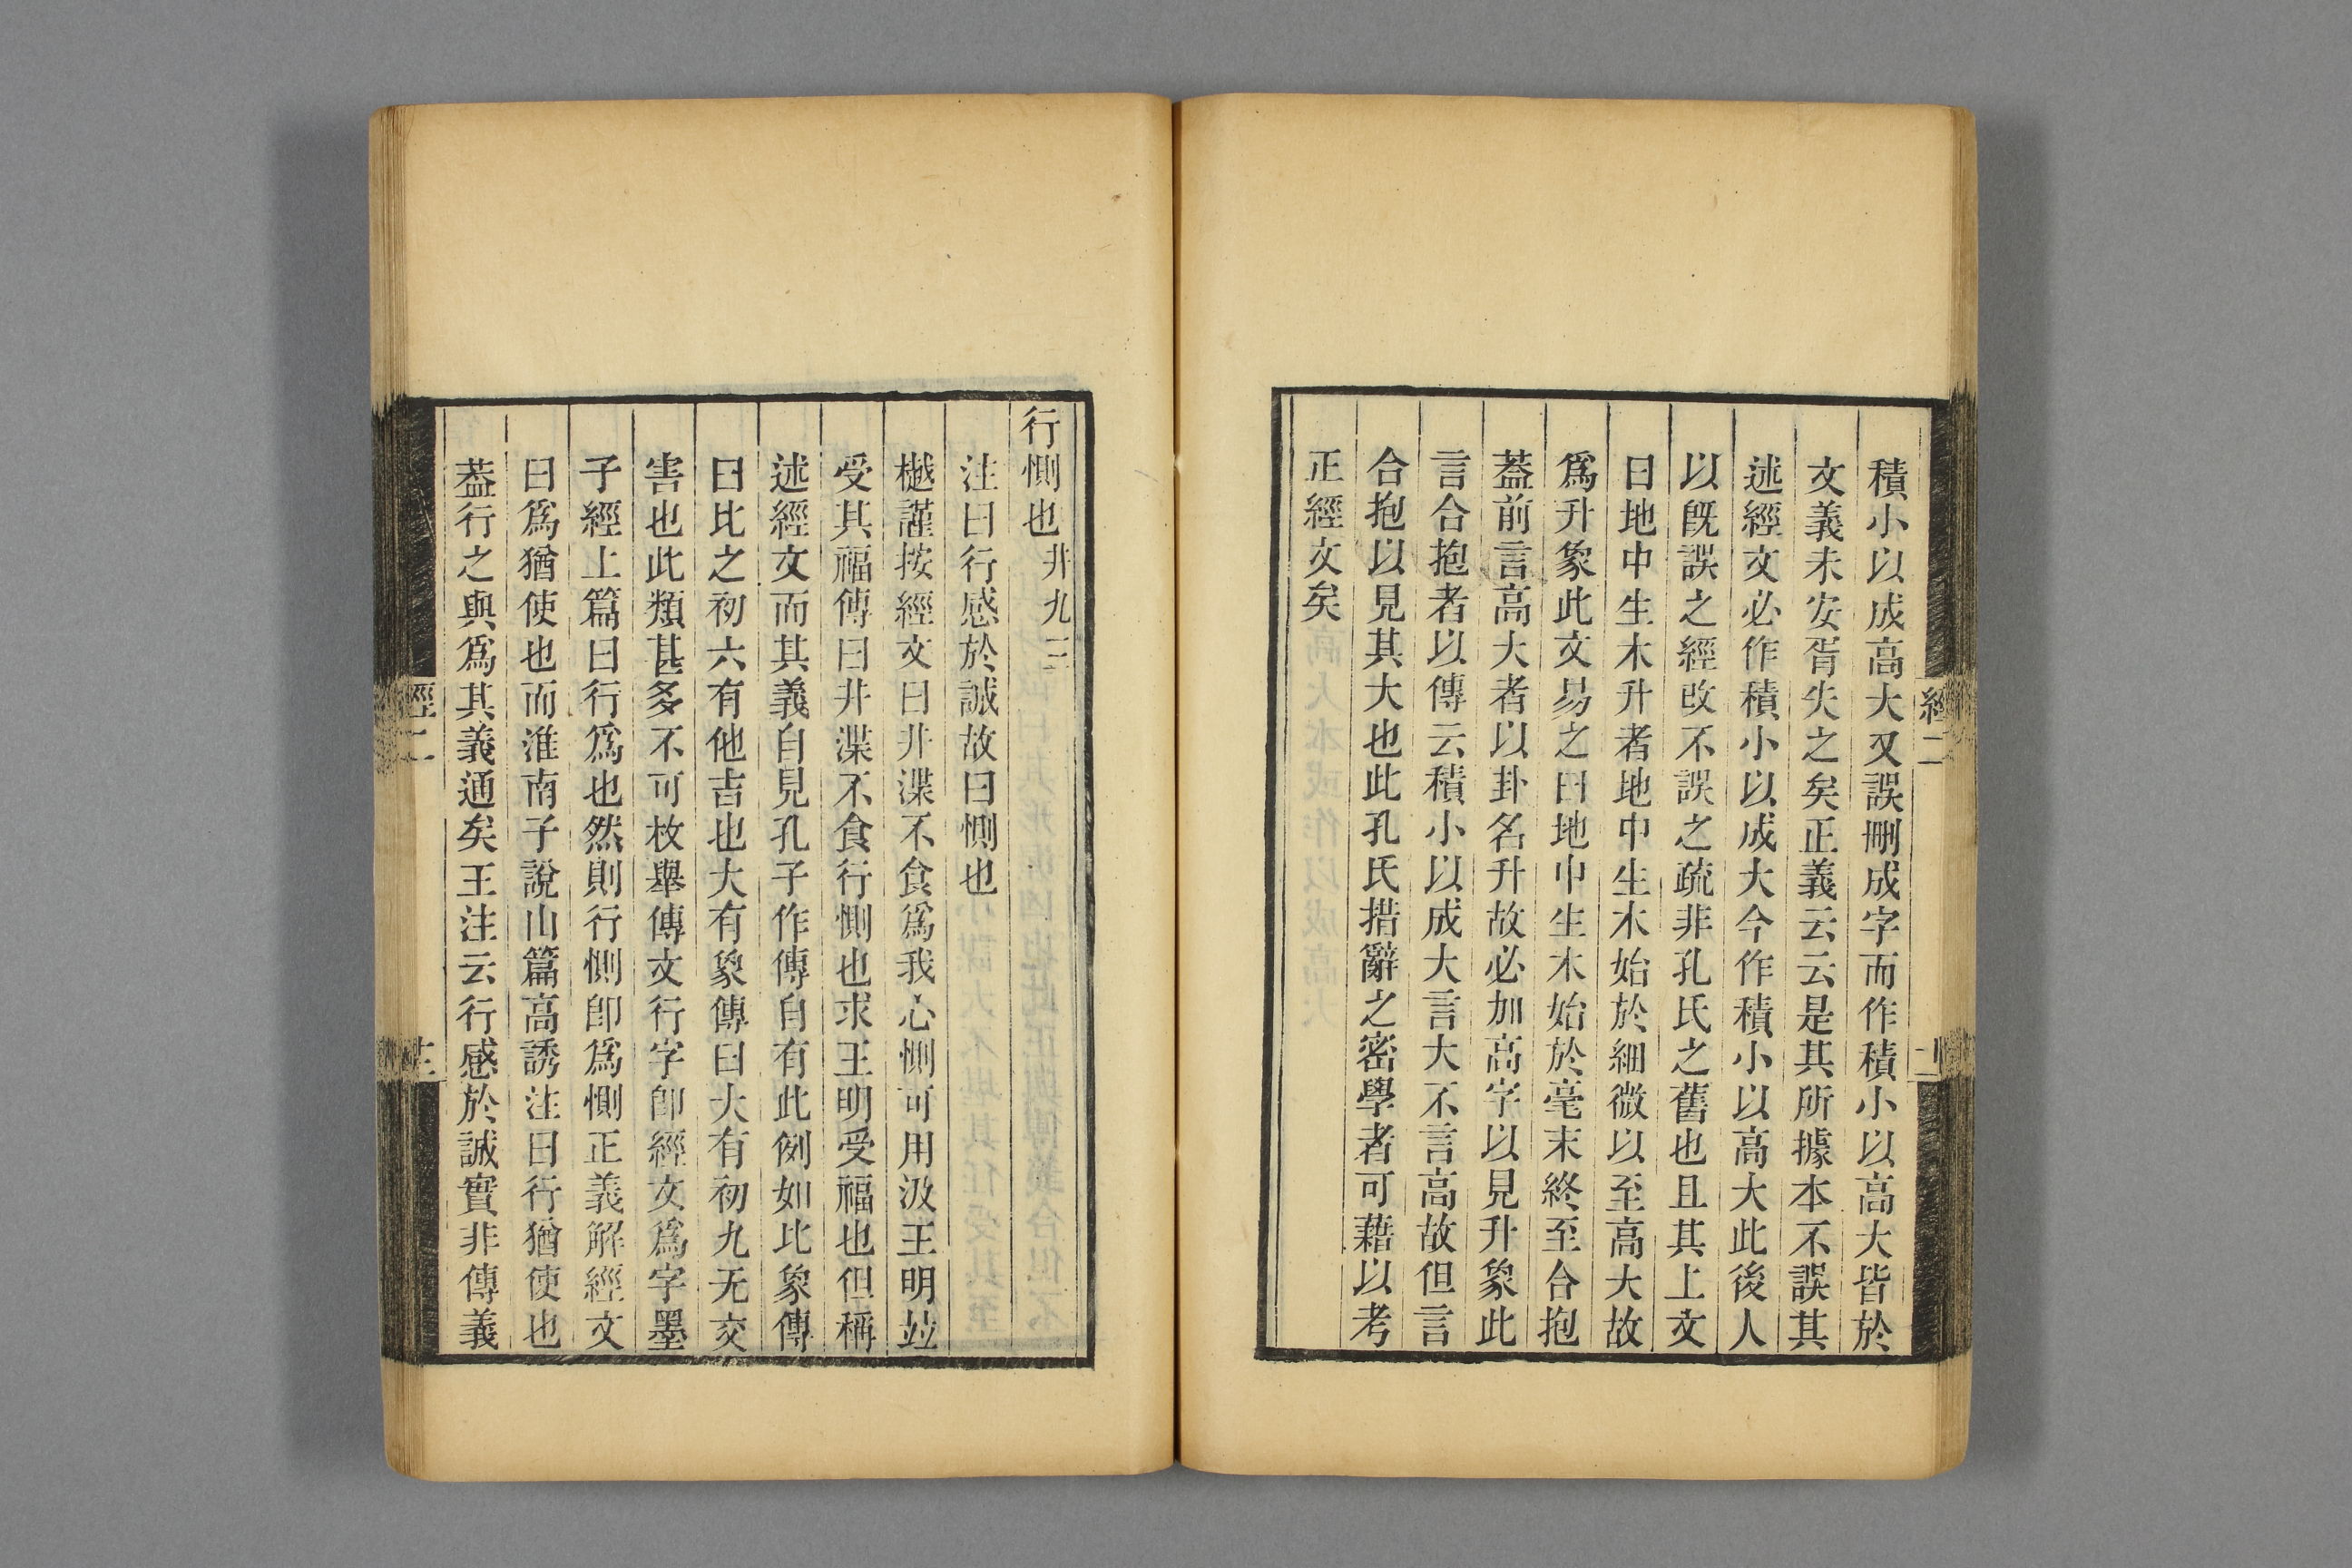 積小以成高大又誤刪成字而作積小以高大皆於
文義未安胥失之矣正義云云是其所據本不誤其
述經文必作積小以成大今作積小以高大此後人
以既誤之經改不誤之疏非孔氏之舊也且其上文
曰地中生木升者地中生木始於細微以至高大故
爲升象此文易之曰地中生木始於毫末終至合抱
葢前言高大者以卦名升故必加高字以見升象此
言合抱者以傳云積小以成大言大不言高故但言
合抱以見其大也此孔氏措辭之密學者可藉以考
正經文矣
經二
行惻也井九三
注曰行感於誠故曰惻也
樾謹按經文曰井渫不食爲我心惻可用汲王明並
受其福傳曰井渫不食行惻也求王明受福也但稱
述經文而其義自見孔子作傳自有此例如比象傳
曰比之初六有他吉也大有象傳曰大有初九无交
害也此類甚多不可枚舉傳文行字卽經文爲字墨
子經上篇曰行爲也然則行惻卽爲惻正義解經文
曰爲猶使也而淮南子說山篇高誘注曰行猶使也
葢行之與爲其義通矣王注云行感於誠實非傳義
經二